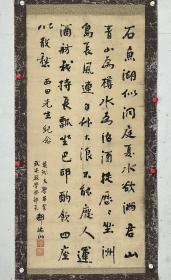 石魚湖似洞庭夏水欲滿君山
青山為樽水為沼酒徒歷歷坐洲
島長風連日作大浪不能廢人運
酒舫我持長瓢坐巴邱酌飲四座
以散愁 西田先生紀念